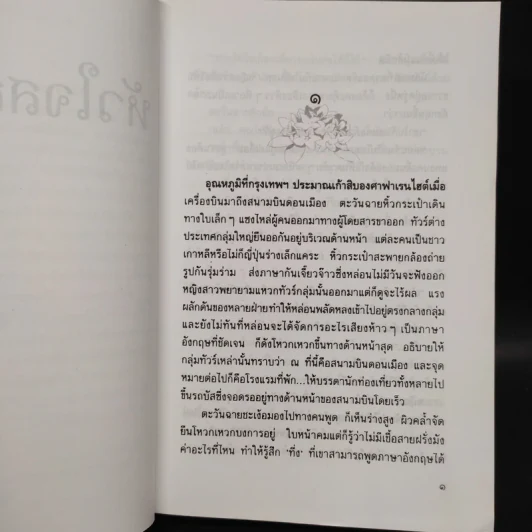 หัวใจส
๑
อุณหภูมิที่กรุงเทพฯ ประมาณเก้าสิบองศาฟาเรนไฮต์เมื่อ
เครื่องบินมาถึงสนามบินดอนเมือง ตะวันฉายหิ้วกระเป๋าเดิน
ทางใบเล็กๆ แซงไหล่ผู้คนออกมาทางผู้โดยสารขาออก ทัวร์ต่าง
ประเทศกลุ่มใหญ่ยืนออกันอยู่บริเวณด้านหน้า แต่ละคนเป็นชาว
เกาหลีหรือไม่ก็ญี่ปุ่นร่างเล็กแคระ หิ้วกระเป๋าสะพายกล้องถ่าย
รูปกันรุ่มร่าม ส่งภาษากันเจี๊ยวจ๊าวซึ่งหล่อนไม่มีวันจะฟังออก
หญิงสาวพยายามแหวกทัวร์กลุ่มนั้นออกมาแต่ก็ดูจะไร้ผล แรง
ผลักดันของหลายฝ่ายทำให้หล่อนพลัดหลงเข้าไปอยู่ตรงกลางกลุ่ม
และยังไม่ทันที่หล่อนจะได้จัดการอะไรเสียงห้าวๆ เป็นภาษา
อังกฤษที่ชัดเจน ก็ดังโหวกเหวกขึ้นทางด้านหน้าสุด อธิบายให้
กลุ่มทัวร์เหล่านั้นทราบว่า ณ ที่นี้คือสนามบินดอนเมือง และจุด
หมายต่อไปก็คือโรงแรมที่พัก...ให้บรรดานักท่องเที่ยวทั้งหลายไป
ขึ้นรถบัสซึ่งจอดรออยู่ทางด้านหน้าของสนามบินโดยเร็ว
ตะวันฉายชะเง้อมองไปทางคนพูด ก็เห็นร่างสูง ผิวคล้ำจัด
ยืนโหวกเหวกบงการอยู่ ใบหน้าคมแต่ก็รู้ว่าไม่มีเชื้อสายฝรั่งมัง
ค่าอะไรที่ไหน ทำให้รู้สึก 'ทึ่ง' ที่เขาสามารถพูดภาษาอังกฤษได้
๑